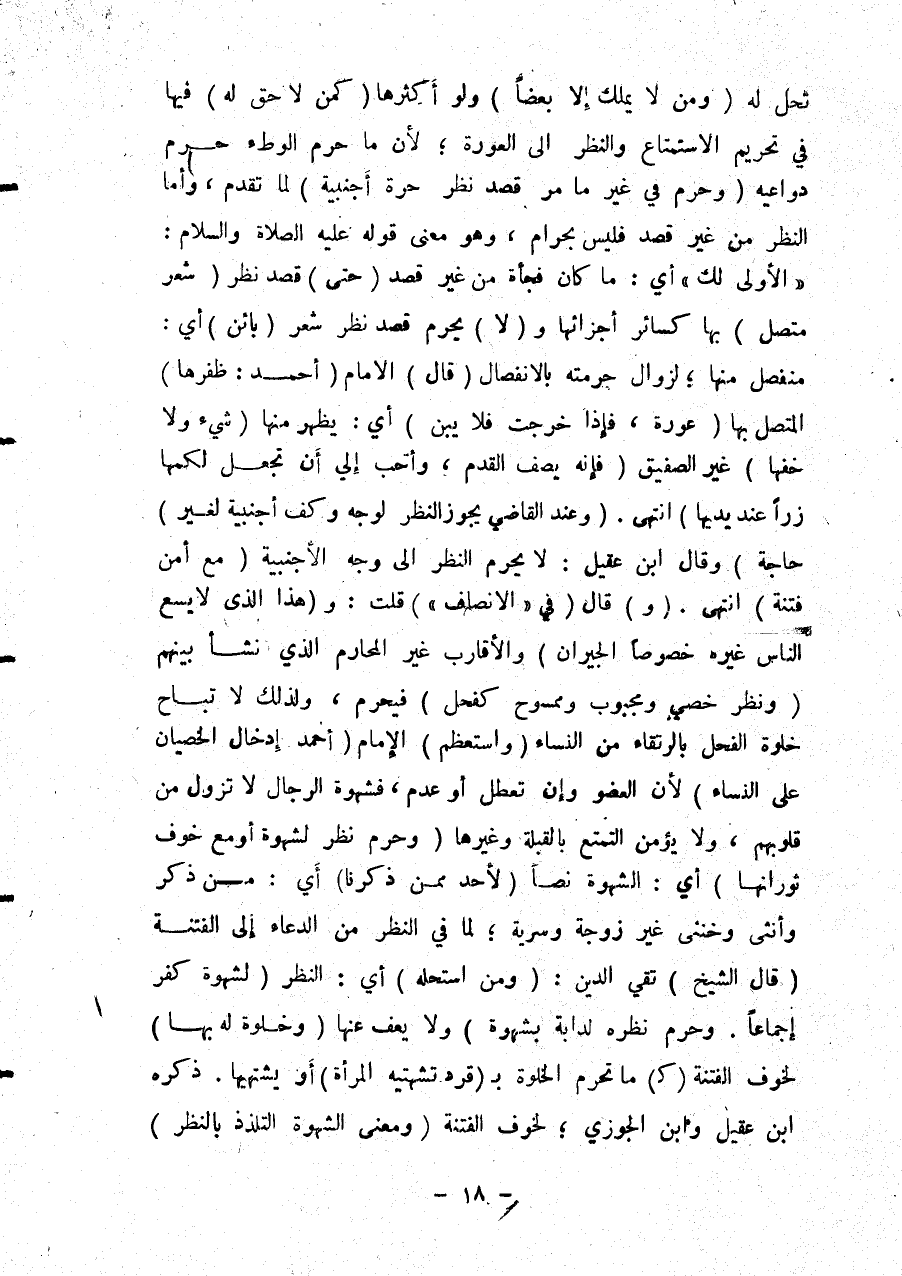 تحل له ( ومن لا يملك إلا بعضاً ) ولو أكثرها ( كمن لا حق له ) فيها
في تحريم الاستمتاع والنظر الى العورة ؛ لأن ما حرم الوطء حـــرم
دواعيه ( وحرم في غير ما مر قصد نظر حرة أجنبية ) لما تقدم ، وأما
النظر من غير قصد فليس بحرام ، وهو معنى قوله عليه الصلاة والسلام :
« الأولى لك » أي : ما كان فجأة من غير قصد ( حتى ) قصد نظر ( شعر
متصل ) بها كسائر أجزائها و ( لا ) يحرم قصد نظر شعر ( بائن ) أي :
منفصل منها ؛ لزوال حرمته بالانفصال ( قال ) الامام ( أحمـــد : ظفرها )
المتصل بها ( عورة ، فإذا خرجت فلا يبن ) أي : يظهر منها ( شيء ولا
خفها ) غير الصفيق ( فإنه يصف القدم ، وأحب إلي أن تجعـــل لكمها
زراً عند يديها ) انتهى . ( وعند القاضي يجوز النظر لوجه وكف أجنبية لغـــير )
حاجة ) وقال ابن عقيل : لا يحرم النظر الى وجه الأجنبية ( مع أمن
فتنة ) انتهى . ( و ) قال ( في « الانصاف » ) قلت : و ( هذا الذى لا يسع
الناس غيره خصوصاً الجيران ) والأقارب غير المحارم الذي نشـــأ بينهم
( ونظر خصي ومجبوب وممسوح كفحل ) فيحرم ، ولذلك لا تبـــاح
خلوة الفحل بالرتقاء من النساء ( واستعظم ) الإمام ( أحمد إدخال الخصيان
على النساء ) لأن العضو وإن تعطل أو عدم ، فشهوة الرجال لا تزول من
قلوبهم ، ولا يؤمن التمتع بالقبلة وغيرها ( وحرم نظر لشهوة أو مع خوف
ثورانهـــا ) أي : الشهوة نصـاً ( لأحد ممن ذكرنا ) أي : مـــن ذكر
وأنثى وخنثى غير زوجة وسرية ؛ لما في النظر من الدعاء إلى الفتنـــة
( قال الشيخ ) تقي الدين : ( ومن استحله ) أي : النظر ( لشهوة كفر
إجماعاً . وحرم نظره لدابة بشهوة ) ولا يعف عنها ( وخـلوة له بهـــا )
لخوف الفتنة ( كـ ) ما تحرم الخلوة بـ ( قرد تشتهيه المرأة ) أو يشتهيها . ذكره
ابن عقيل وابن الجوزي ؛ لخوف الفتنة ( ومعنى الشهوة التلذذ بالنظر )
- ١٨ -